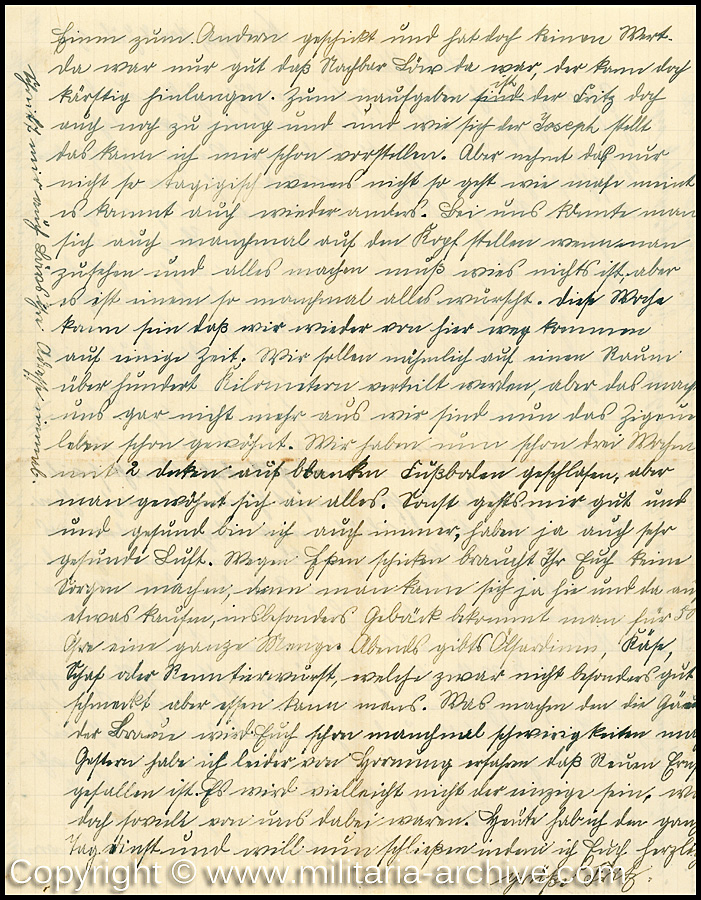 Einen zum Andern geschickt und hat doch keinen Wert.
Da war nur gut daß Nachbar Löw da war, der kann doch
kärftig hinlangen. Zum naufgeben ist der Fritz doch
auch noch zu jung und und wie sich der Joseph stellt
das kann ich mir schon vorstellen. Aber nehmt das nur
nicht so wenns nicht so geht wie mans meint
es kommt auch wieder anders. Bei uns könnte man
sich auch manchmal auf den Kopf stellen wenn man
zusehen und alles machen muß wies nichts ist, aber
es ist einem so manchmal alles wurscht. Diese Woche
kann sein daß wir wieder von hier weg kommen
auf einige Zeit. Wir sollen nähmlich auf einen Raum
über hundert Kilometern verteilt werden, aber das mach
uns gar nicht mehr aus wir sind nun das Zigeune
leben schon gewöhnt. Wir haben nun schon drei Wochen
mit 2 deken auf blanken Fußboden geschlafen, aber
man gewöhnt sich an alles. Sonst gehts mir gut und
und gesund bin ich auch immer, haben ja auch sehr
gesunde Luft. Wegen Eßen schicken braucht Ihr Euch keine
Sorgen machen, denn man kann sich ja hie und da auch
etwas kaufen, insbesonders Gebäck bekommt man für 50
Öre eine ganze Menge. Abends gibts Ölsardinen, Käse,
Schaf oder Renntierwurst, welche zwar nicht besonders gut
schmeckt aber essen kann mans. Was machen den die Gäu
der Braune wird Euch schon manchmal schwirigkeiten ma
Gestern habe ich leider von Hornung erfahren daß Neuen Ernst
gefallen ist. Es wird vielleicht nicht der einzige sein, wo
doch soviele von uns dabei waren. Heute hab ich den ganz
Tag dinst und will nun schließen indem ich Euch herzlich
Grüße
Schickt mir auch Ihr
Copyright © www.militaria-archive.com